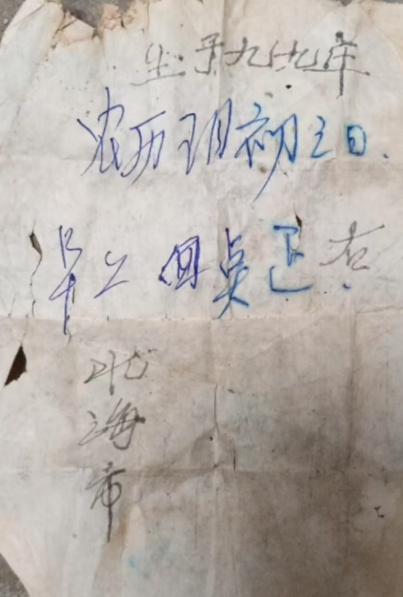 生于九十九年
农历月初三日.
早上四点右
北
海
市